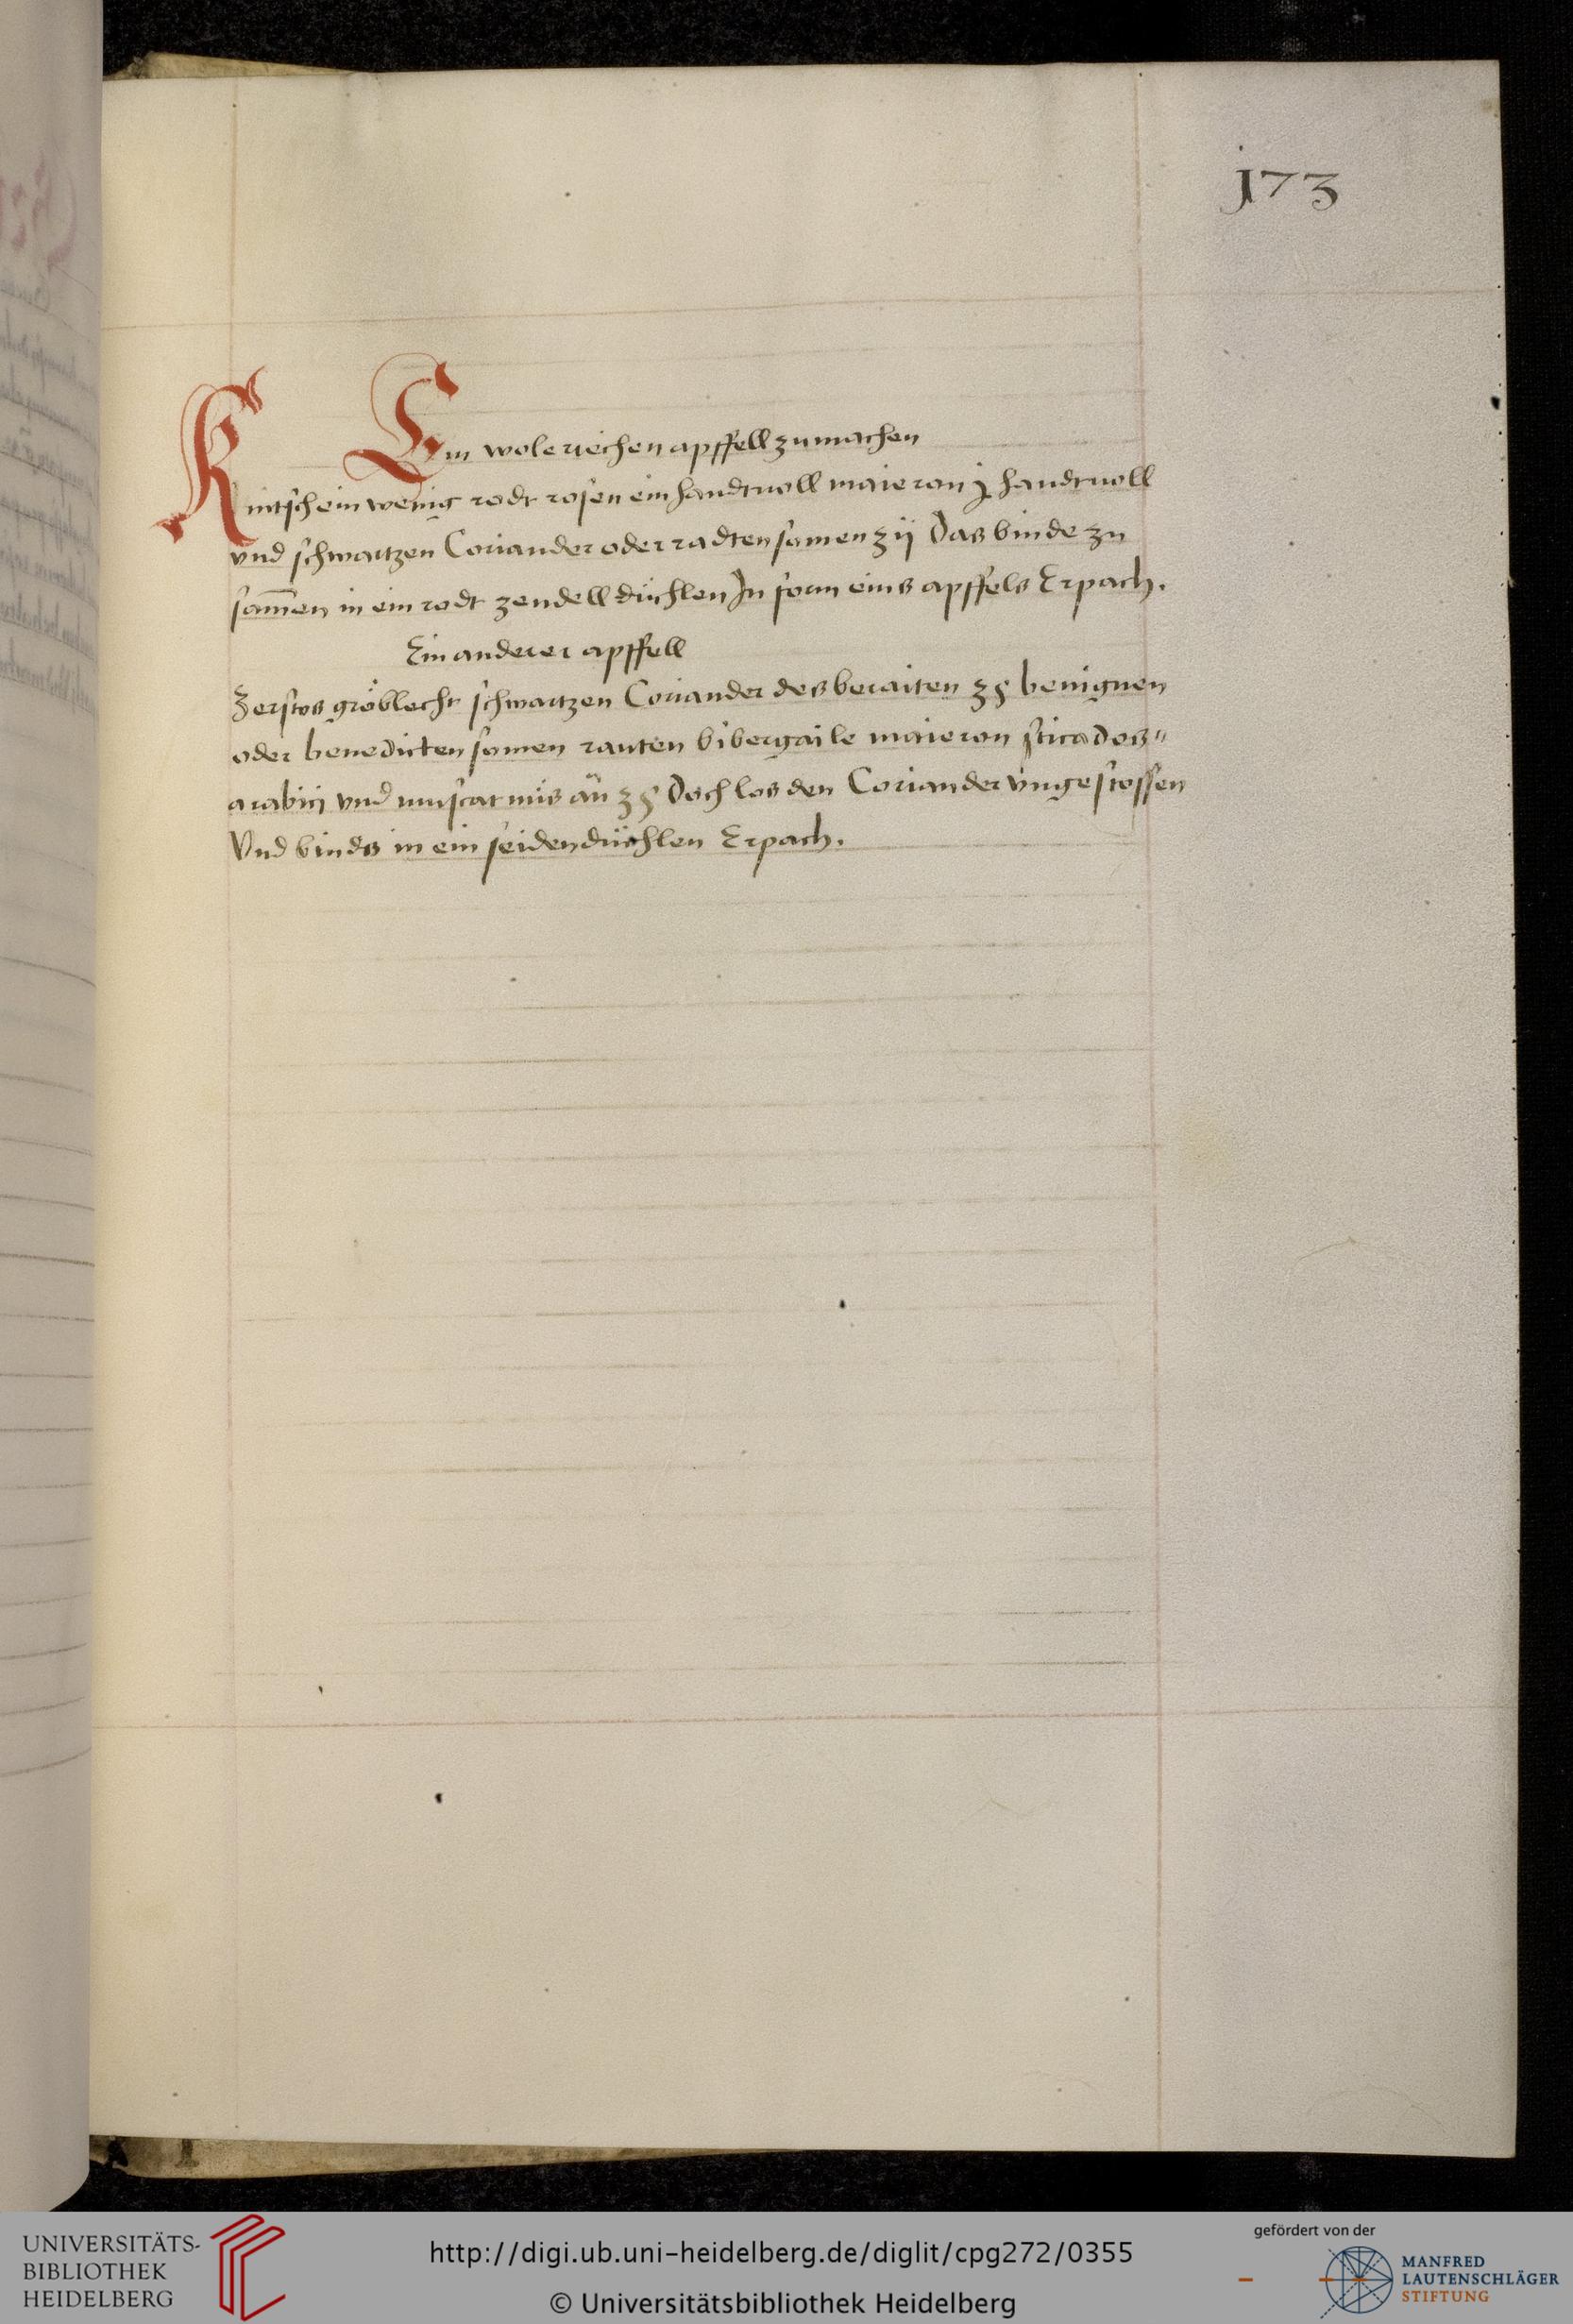 j73
Ein wole riechen apffell zu machen
Knitsch ein wenig rodt rosen ein handtuoll maieron j handtuoll
vnd schwartzen Coriander oder radten somen ʒ ij Das binde zu
sam̅en in ein rodt zendell düchlen In form eins apffels Erpach.
Ein anderer apffell
Zerstos gröblecht schwartzen Coriander des beraiten ʒ ß benignen
oder benedicten somen rauten bibergaile maieron sticados"
arabici vnd muscat nus an̅ ʒ ß Doch los den Coriander vngestossen
Vnd binds in ein seiden düchlen Erpach.
UNIVERSITÄTS-
BIBLIOTHEK
HEIDELBERG
http://digi.ub.uni-heidelberg.de/diglit/cpg272/0355
© Universitätsbibliothek Heidelberg
gefördert von der
MANFRED
LAUTENSCHLÄGER
STIFTUNG